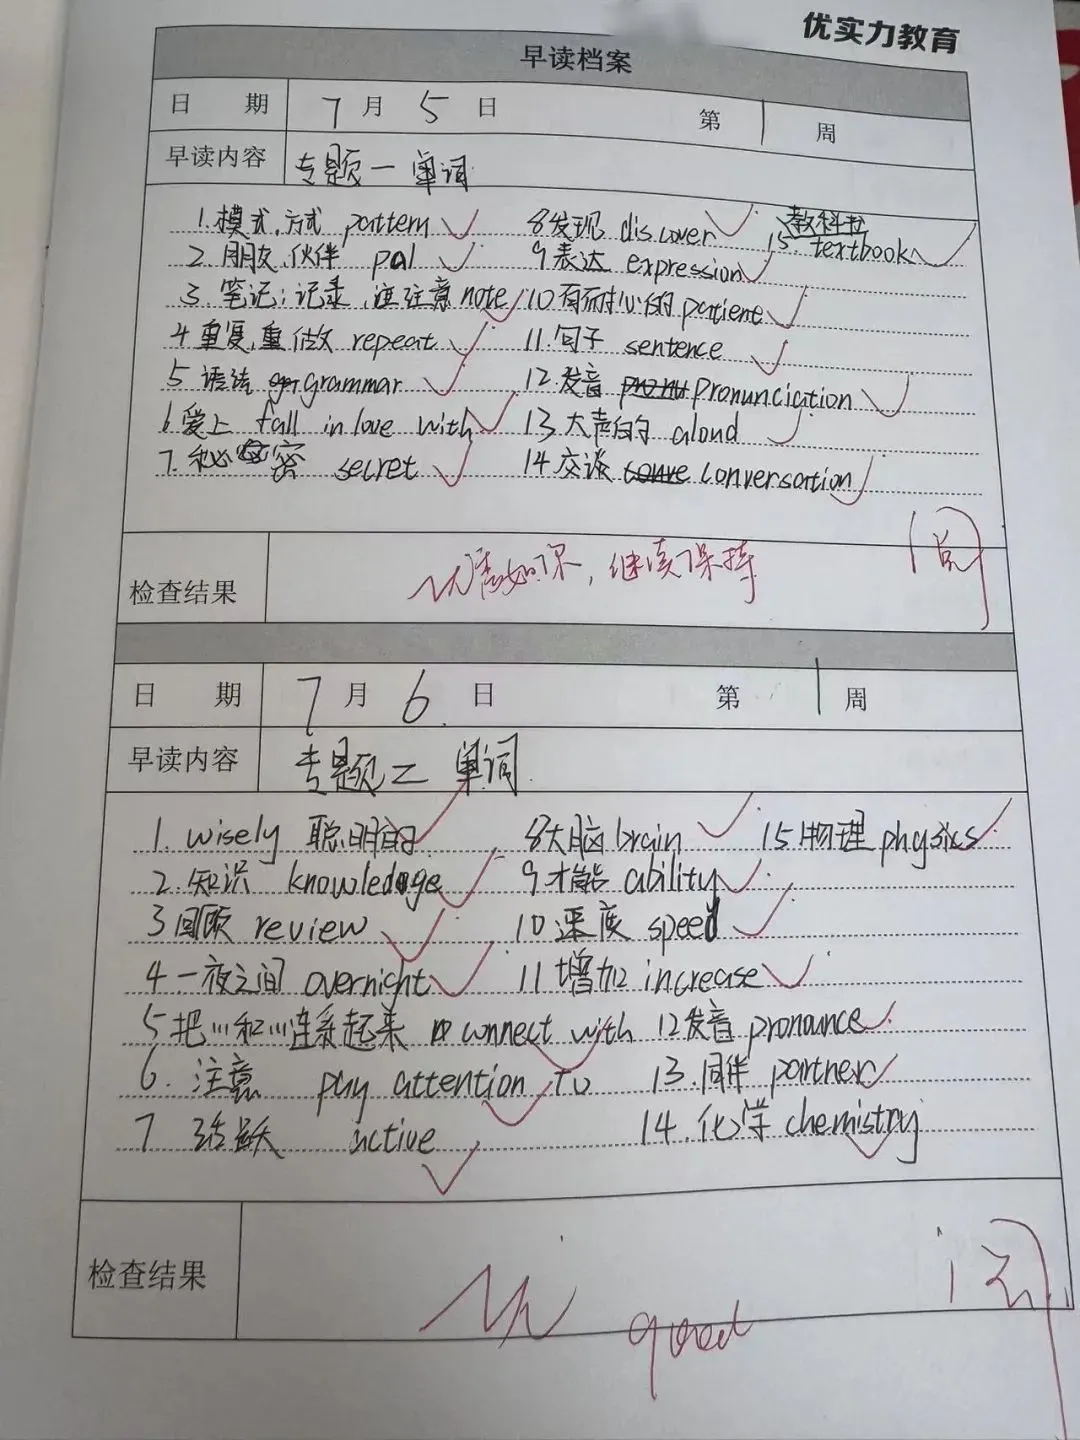 优实力教育
早读档案
日 期 7月5日 第1周
早读内容 专题一 单词
1.模式,方式 pattern 8发现 discover 教科书
2.朋友,伙伴 pal 9表达 expression 15.textbook
3.笔记;记录,注注意 note 10有耐心的 patient
4重复,重做 repeat 11.句子 sentence
5 语法 grammar 12.发音 pronunciation
6爱上 fall in love with 13大声的 aloud
7.秘密 secret 14交谈 conversation
检查结果 继续保持
日 期 7月6日 第1周
早读内容 专题二 单词
1.wisely 聪明的 8大脑 brain 15物理 physics
2.知识 knowledge 9才能 ability
3回顾 review 10速度 speed
4一夜之间 overnight 11增加 increase
5把…和…连系起来 connect with 12发音 pronance
6.注意 pay attention to 13.同伴 partner
7活跃 active 14.化学 chemistry
检查结果 优 good